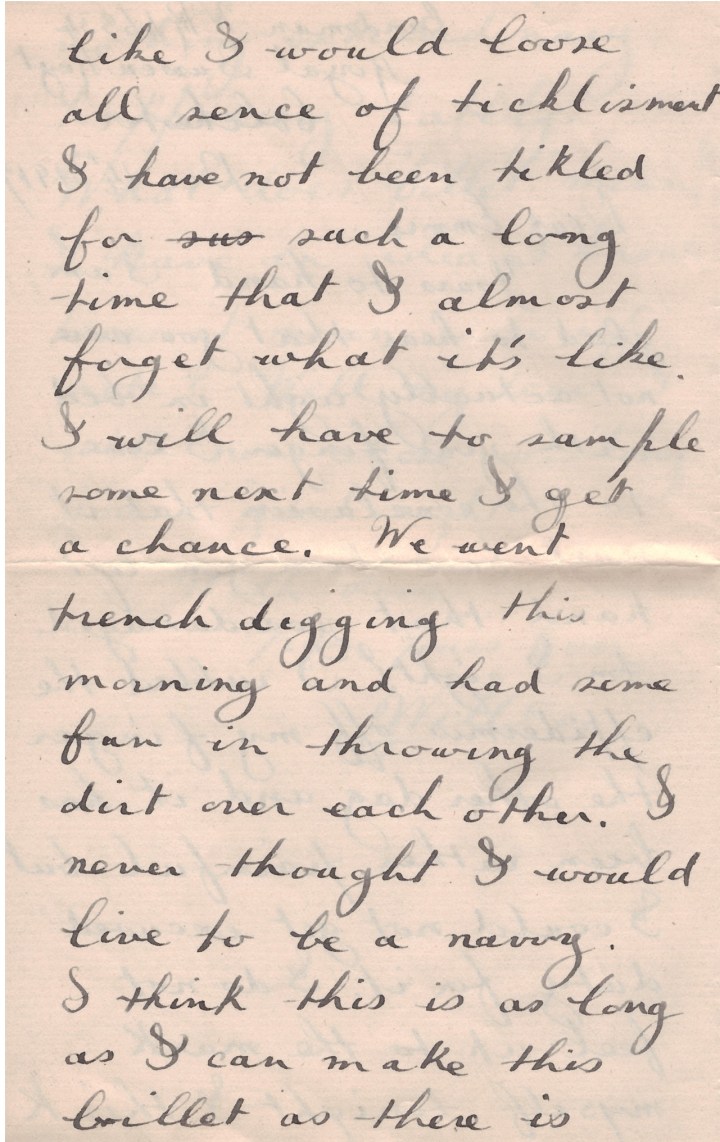 like I would loose
all sence of ticklisment
I have not been tikled
for sus such a long
time that I almost
forget what it's like.
I will have to sample
some next time I get
a chance. We went
trench digging this
morning and had some
fun in throwing the
dirt over each other. I
never thought I would
live to be a navvy.
I think this is as long
as I can make this
brillet as there is